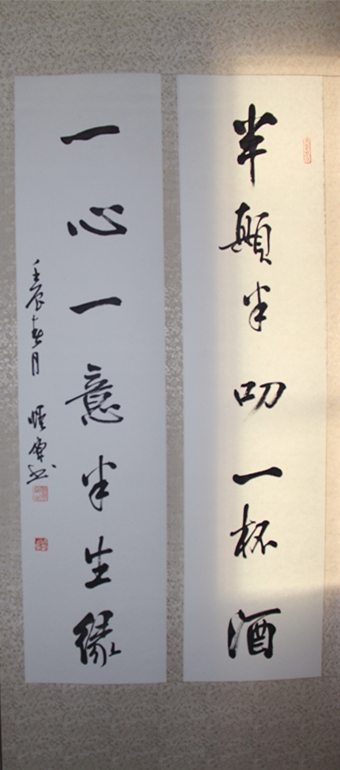 半顛半叨一杯酒
一心一意半生緣
壬辰春月